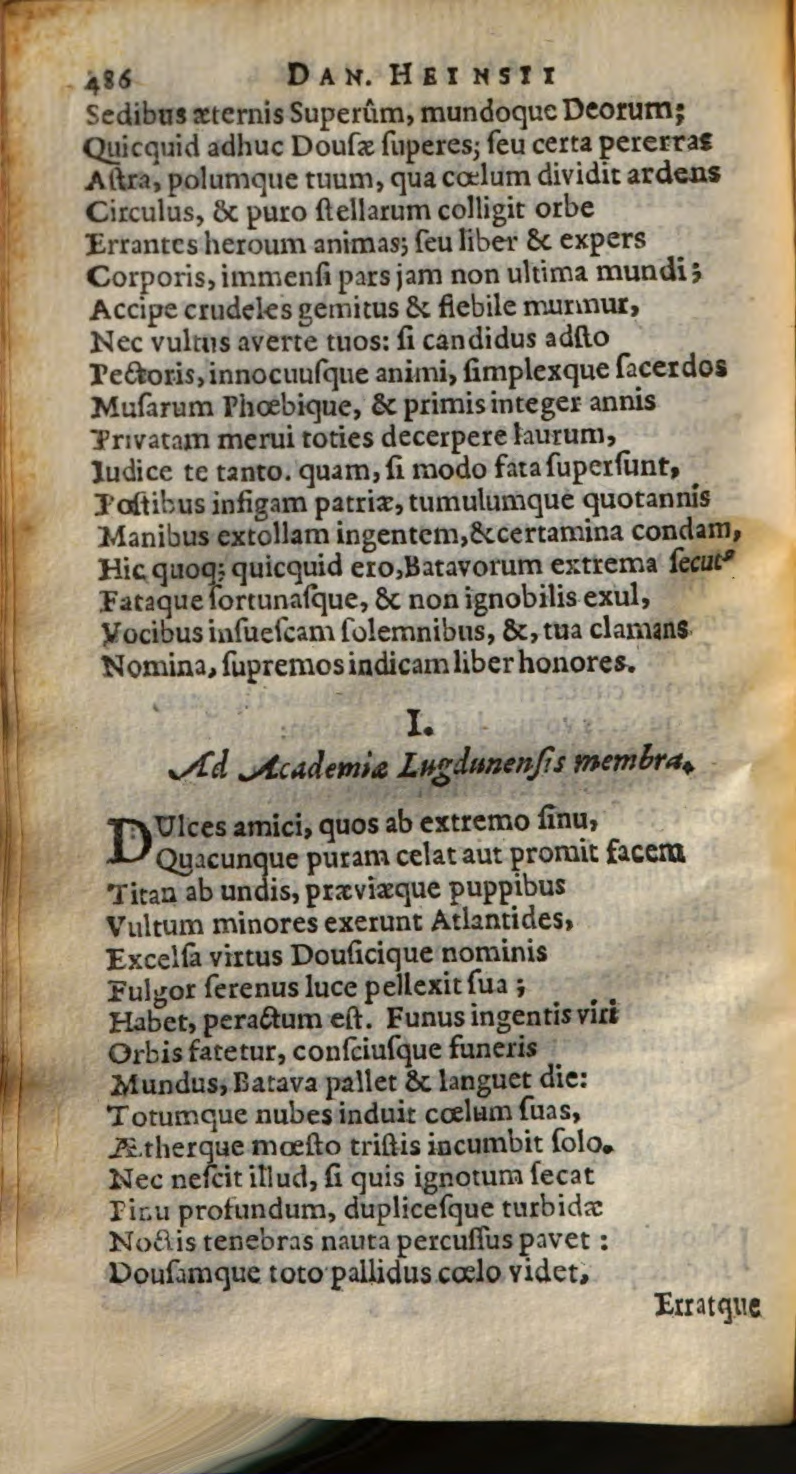 486 DAN. HEINSII
Sedibus æternis Superûm, mundoque Deorum;
Quicquid adhuc Douſæ ſuperes; ſeu certa pererras
Aſtra, polumque tuum, qua cœlum dividit ardens
Circulus, & puro ſtellarum colligit orbe
Errantes heroum animas; ſeu liber & expers
Corporis, immenſi pars jam non ultima mundi;
Accipe crudeles gemitus & flebile murmur,
Nec vultus averte tuos: ſi candidus adſto
Pectoris, innocuuſque animi, ſimplexque ſacerdos
Muſarum Phœbique, & primis integer annis
Privatam merui toties decerpere laurum,
Iudice te tanto. quam, ſi modo fata ſuperſunt,
Poſtibus infigam patriæ, tumulumque quotannis
Manibus extollam ingentem, & certamina condam,
Hic quoq; quicquid ero, Batavorum extrema ſecutꝰ
Fataque fortunaſque, & non ignobilis exul,
Vocibus inſueſcam ſolemnibus, &, tua clamans
Nomina, ſupremos indicam liber honores.
I.
Ad Academiæ Lugdunenſis membra.
DUlces amici, quos ab extremo ſinu,
Quacunque puram celat aut promit facem
Titan ab undis, præviæque puppibus
Vultum minores exerunt Atlantides,
Excelſa virtus Douſicique nominis
Fulgor ſerenus luce pellexit ſua;
Habet, peractum eſt. Funus ingentis viri
Orbis fatetur, conſciuſque funeris
Mundus, Batava pallet & languet die:
Totumque nubes induit cœlum ſuas,
Ætherque mœſto triſtis incumbit ſolo.
Nec neſcit illud, ſi quis ignotum ſecat
Pinu profundum, dupliceſque turbidæ
Noctis tenebras nauta percuſſus pavet:
Douſamque toto pallidus cœlo videt,
Erratque